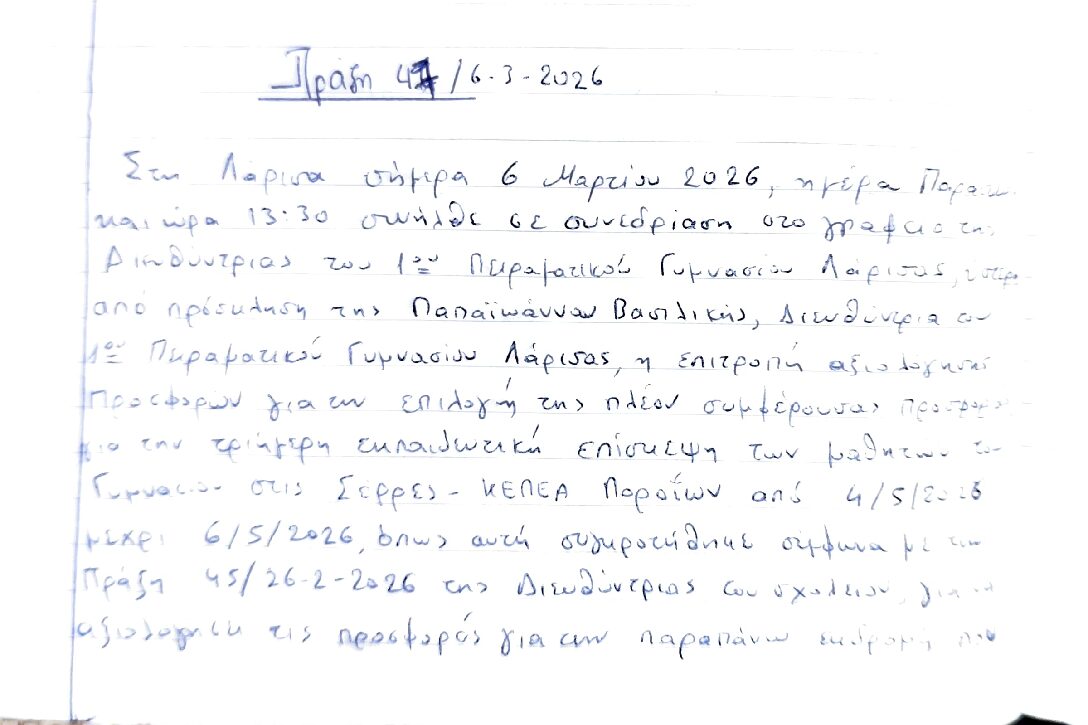 Πράξη 47/6-3-2026
Στη Λάρισα σήμερα 6 Μαρτίου 2026, ημέρα
και ώρα 13:30 συνήλθε σε συνεδρίαση στο γραφείο της
Διευθύντριας του 1ου Πειραματικού Γυμνασίου Λάρισας, ύστερα
από πρόσκληση της Παπαϊωάννου Βασιλικής, Διευθύντρια του
1ου Πειραματικού Γυμνασίου Λάρισας, η επιτροπή αξιολόγησης
Προσφορών για την επιλογή της πλέον συμφέρουσας
για την τριήμερη εκπαιδευτική επίσκεψη των μαθητών του
Γυμνασίου στις Σέρρες - ΚΕΠΕΑ Ποροΐων από 4/5/2026
μέχρι 6/5/2026, όπως αυτή συγκροτήθηκε σύμφωνα με την
Πράξη 45/26-2-2026 της Διευθύντριας του σχολείου, για να
αξιολογήσει τις προσφορές για την παραπάνω εκδρομή που